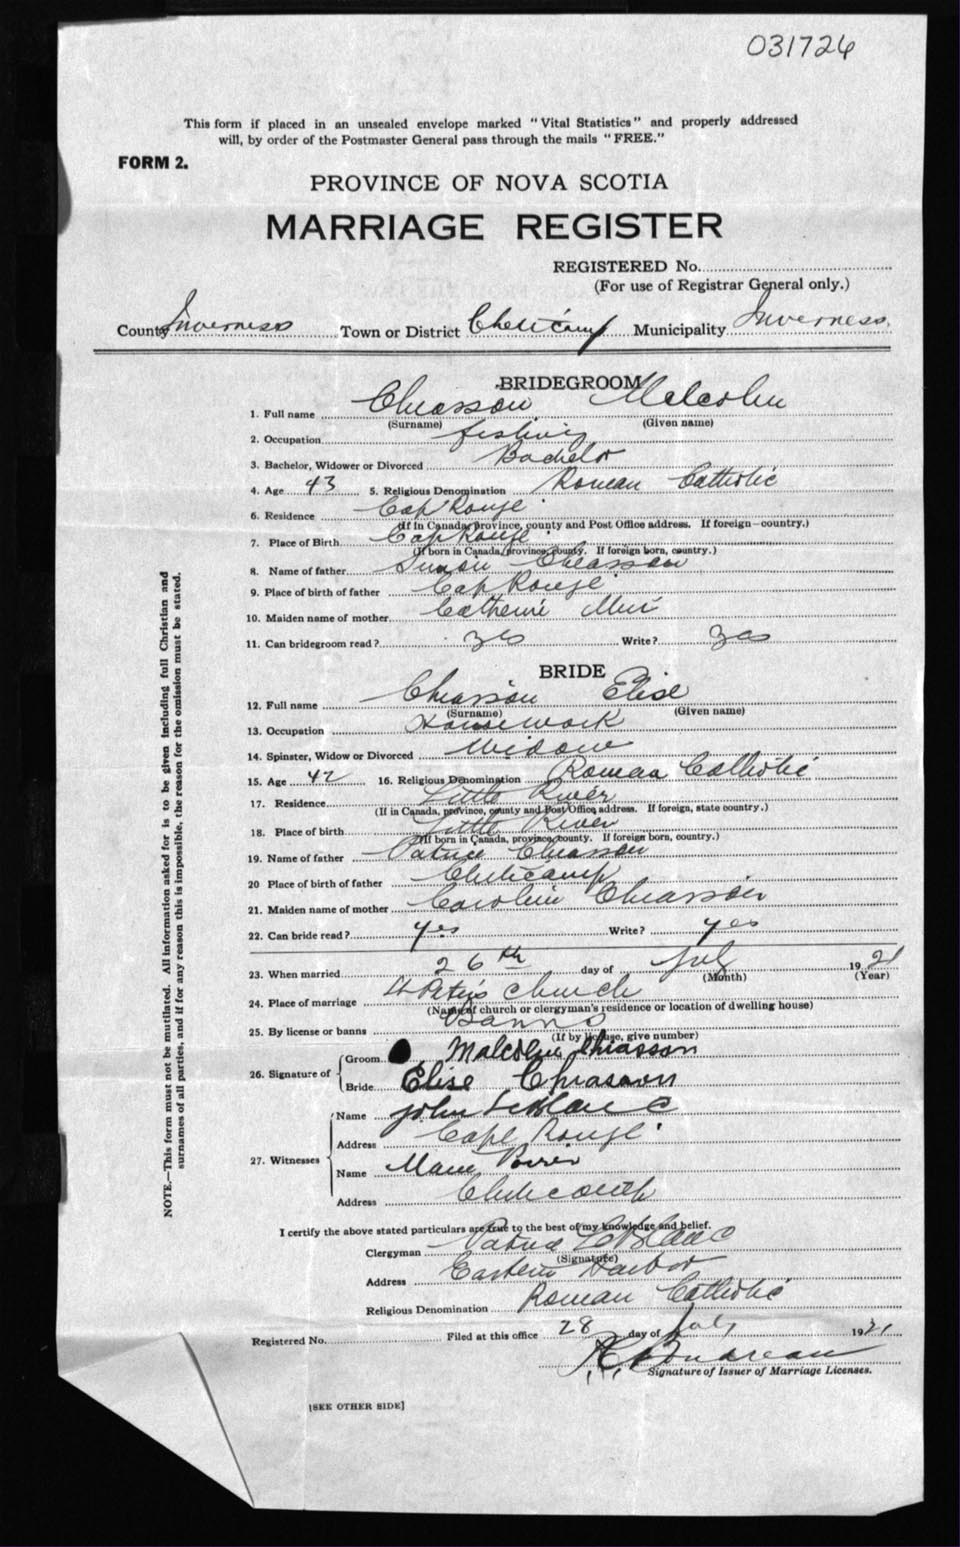 031726
This form if placed in an unsealed envelope marked "Vital Statistics" and properly addressed
will, by order of the Postmaster General pass through the mails "FREE."
FORM 2.
PROVINCE OF NOVA SCOTIA
MARRIAGE REGISTER
REGISTERED No.
(For use of Registrar General only.)
County Inverness Town or District Cheticamp Municipality Inverness
BRIDEGROOM
1. Full name Chiasson Malcolm
(Surname) (Given name)
2. Occupation fishing
3. Bachelor, Widower or Divorced Bachelor
4. Age 43 5. Religious Denomination Roman Catholic
6. Residence Cap Rouge
(If in Canada, province, county and Post Office address. If foreign-country.)
7. Place of Birth Cap Rouge
(If born in Canada, province, county. If foreign born, country.)
8. Name of father Simon Chiasson
9. Place of birth of father Cap Rouge
10. Maiden name of mother Catherine
11. Can bridegroom read? yes Write? yes
BRIDE
12. Full name Chiasson Elise
(Surname) (Given name)
13. Occupation Housework
14. Spinster, Widow or Divorced Widow
15. Age 42 16. Religious Denomination Roman Catholic
17. Residence Little River
(If in Canada, province, county and Post Office address. If foreign, state country.)
18. Place of birth Little River
(If born in Canada, province, county. If foreign born, country.)
19. Name of father Patrice Chiasson
20 Place of birth of father Cheticamp
21. Maiden name of mother Caroline Chiasson
22. Can bride read? yes Write? yes
23. When married 26th day of July 1921
(Month) (Year)
24. Place of marriage St Peter's Church
(Name of church or clergyman's residence or location of dwelling house)
25. By license or banns Banns
(If by license, give number)
26. Signature of
Groom Malcolm Chiasson
Bride Elise Chiasson
27. Witnesses
Name John LeBlanc
Address Cape Rouge
Name Marie Poirier
Address Cheticamp
I certify the above stated particulars are true to the best of my knowledge and belief.
Clergyman Patrice LeBlanc
(Signature)
Address Eastern Harbor
Religious Denomination Roman Catholic
Registered No. Filed at this office 28 day of July 1921
Boudreau
Signature of Issuer of Marriage Licenses.
[SEE OTHER SIDE]
NOTE.—This form must not be mutilated. All information asked for is to be given including full Christian and
surnames of all parties, and if for any reason this is impossible, the reason for the omission must be stated.